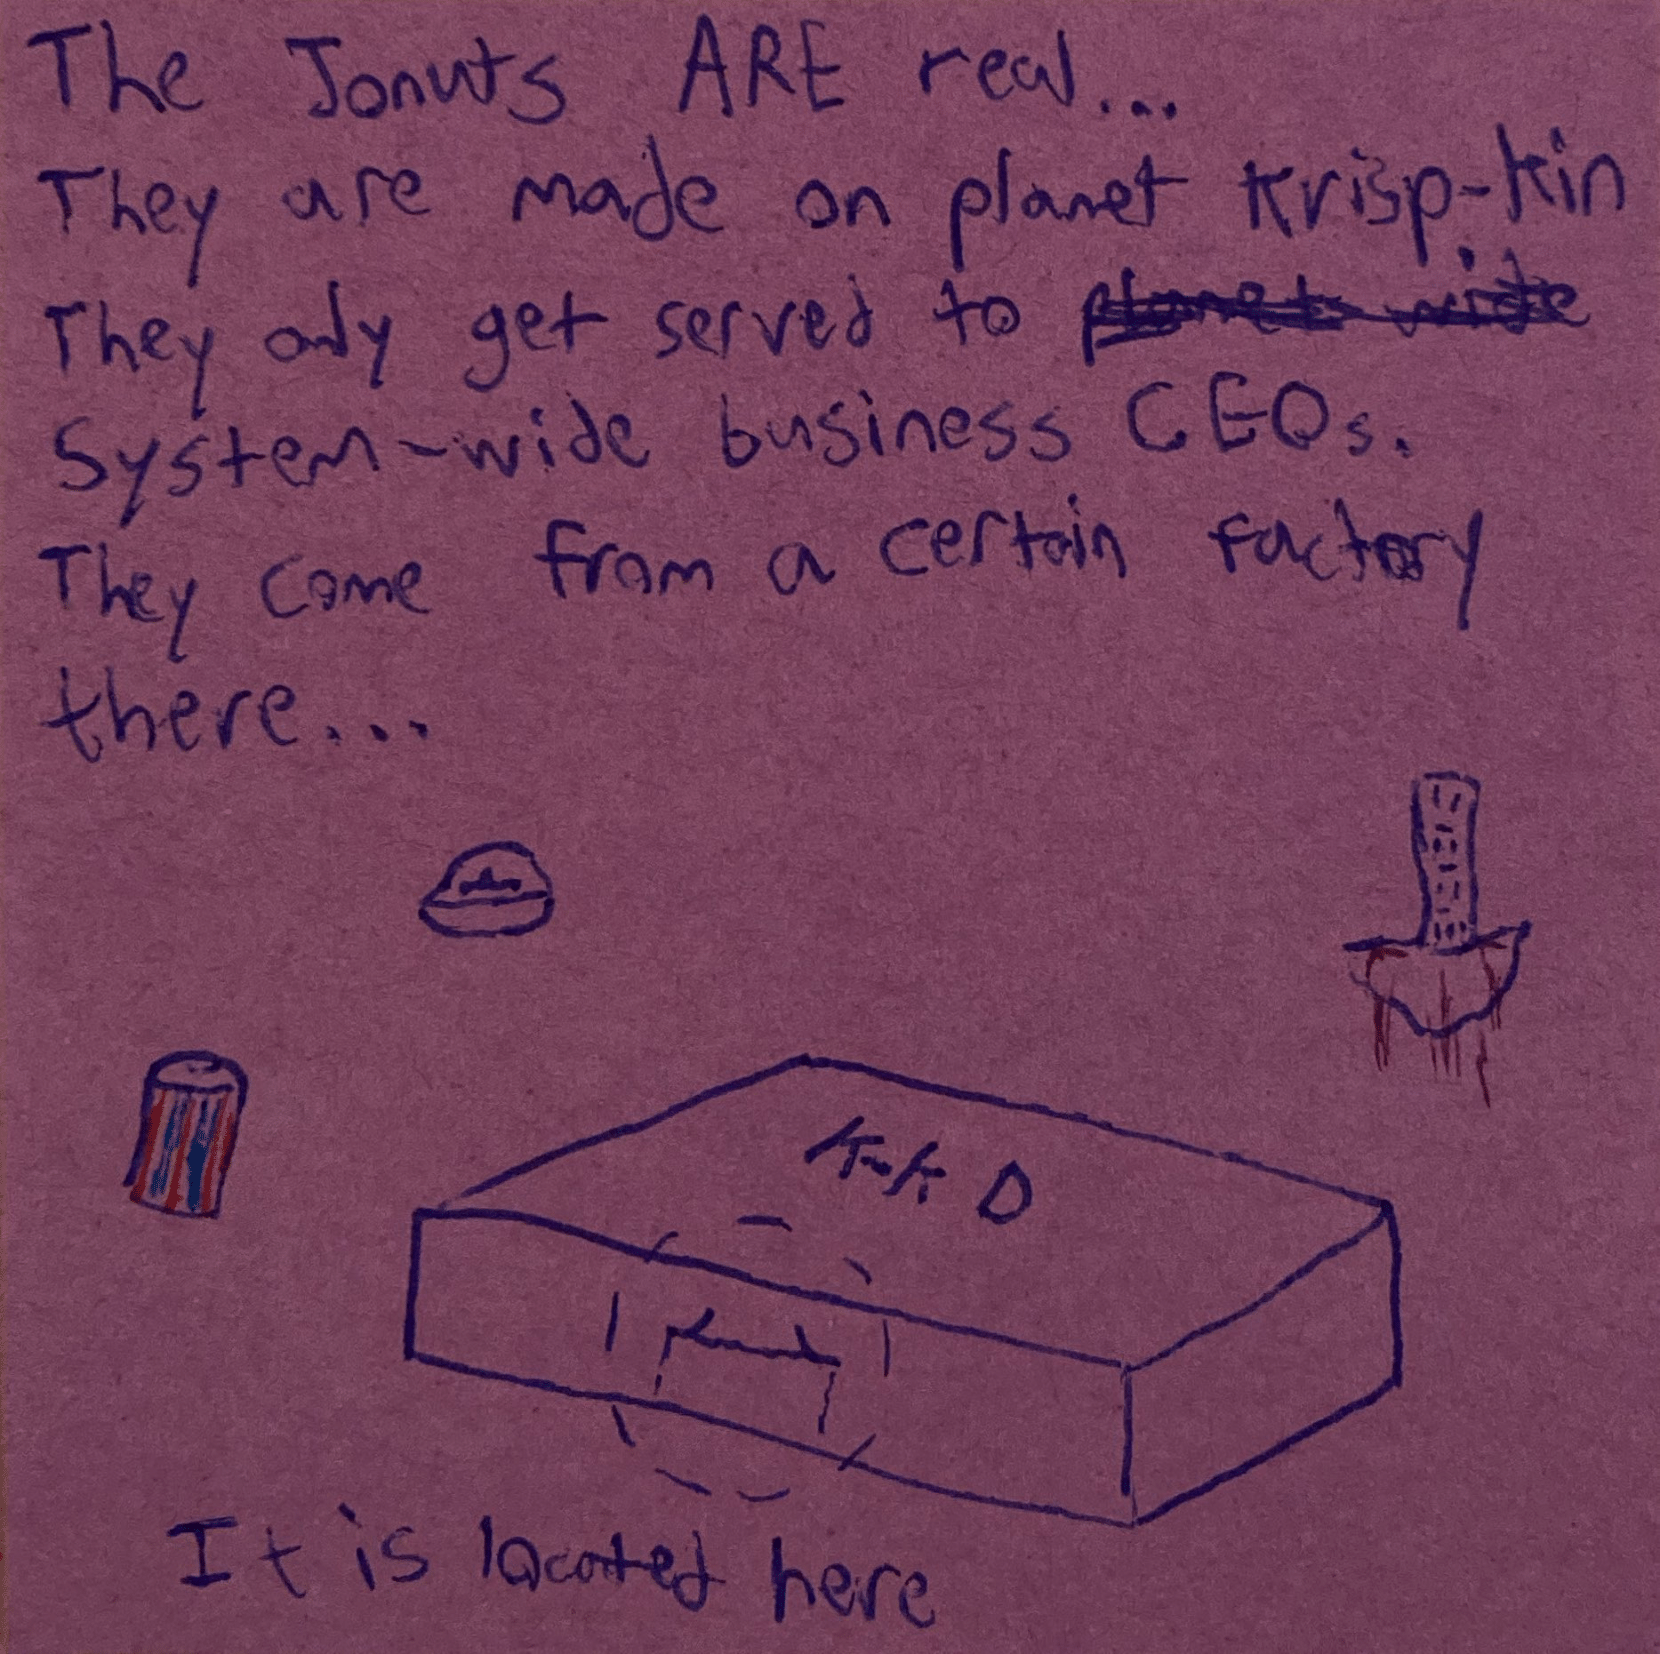 The Jonuts ARE real...
They are made on planet Krisp-Kin
They only get served to planet wide
System-wide business CEOs.
They come from a certain factory
there...
K-K D
It is located here